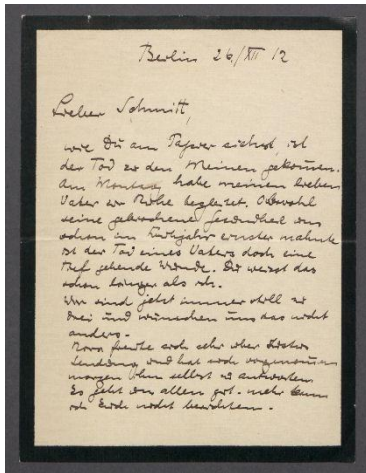 Berlin 26/XII 12
Lieber Schmitt,
wie Du am Papier siehst, ist
der Tod zu den Meinen gekommen.
Am Montag habe meinen lieben
Vater zur Ruhe begleitet. Obwohl
seine gebrochene Gesundheit uns
schon im Frühjahr ernster mahnte
ist der Tod eines Vaters doch eine
tief gehende Wunde. Du weisst das
schon länger als ich.
Wir sind jetzt immer still zu
Drei und wünschen uns das nicht
anders.
freute sich sehr über
Sendung und hat sich vorgenommen
morgen Ihm selbst zu antworten.
Es geht uns allen gut. mehr kann
ich Euch nicht berichten.